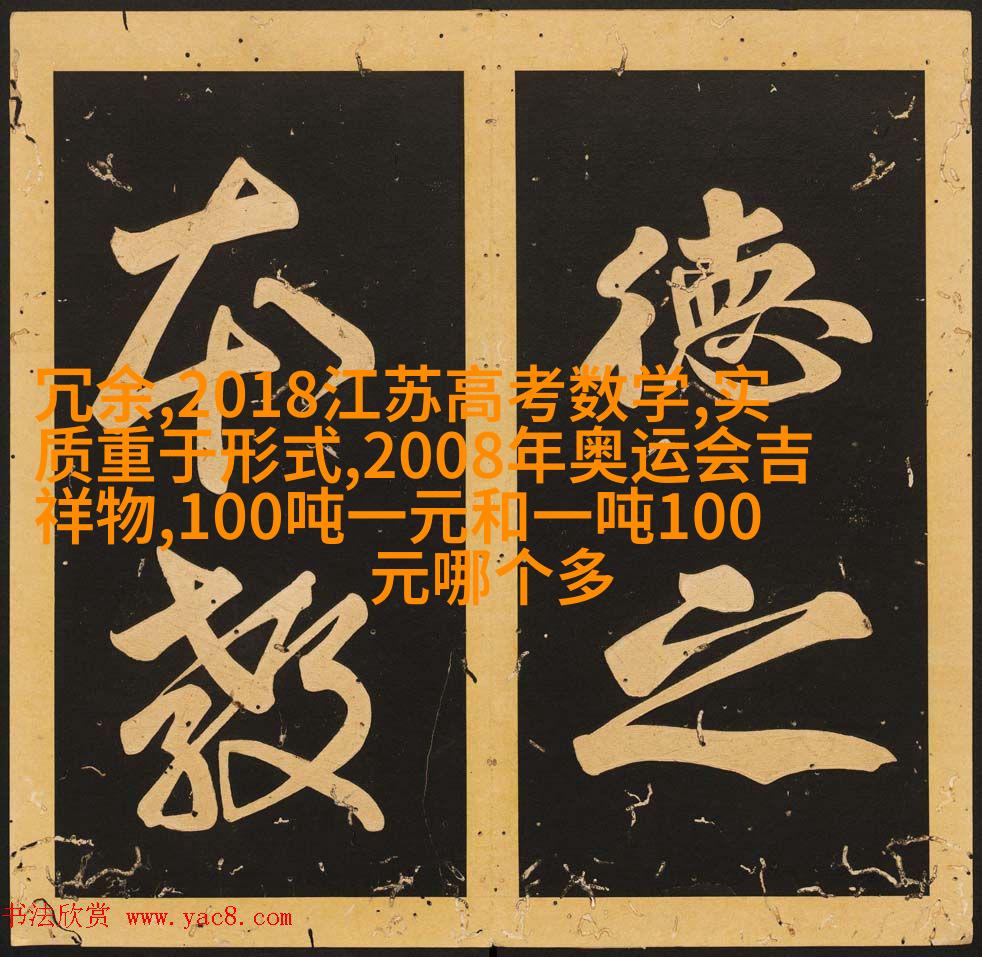 德之
本教
冗余,2018江苏高考数学,实
质重于形式,2008年奥运会吉
祥物,100吨一元和一吨100
元哪个多
书法欣赏 www.yac8.com